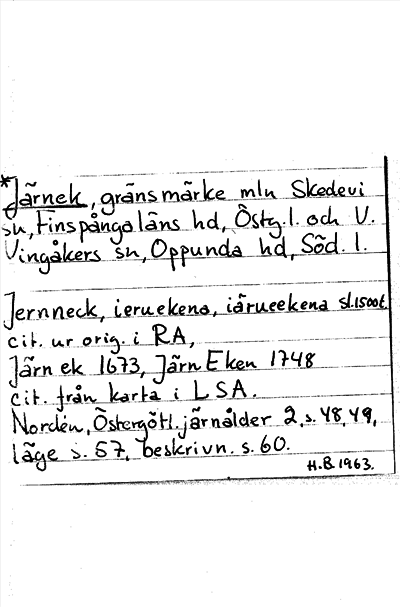 *Järnek, gränsmärke mln Skedevi
sn, Finspånga läns hd, Östg.l. och V.
Vingåkers sn, Oppunda hd, Söd. l.
Jernneck, ieruekena, iärueekena sl.1500t.
cit. ur orig. i RA,
Järn ek 1673, Järn Eken 1748
cit. från karta i LSA.
Nordén, Östergötl. järnålder 2, s. 48, 49,
läge s. 57, beskrivn. s. 60.
H.B. 1963.